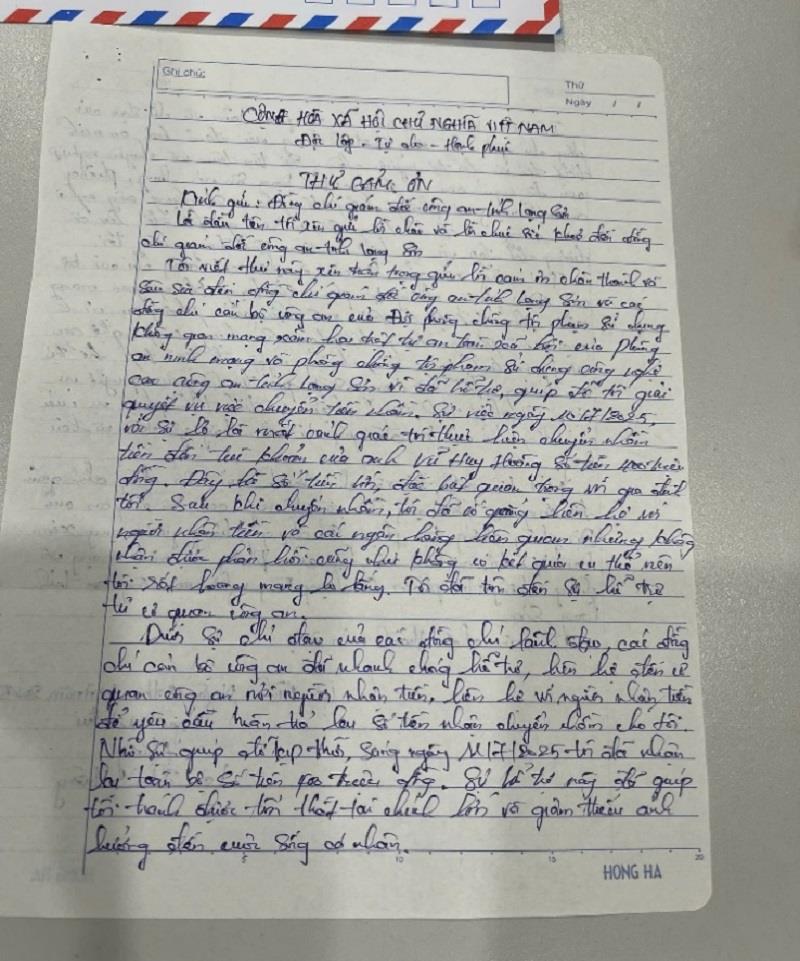 Ghi chú:
Thứ
Ngày / /
CỘNG HÒA XÃ HỘI CHỦ NGHĨA VIỆT NAM
Độc lập - Tự do - Hạnh phúc
THƯ CẢM ƠN
Kính gửi: Đồng chí giám đốc công an tỉnh Lạng Sơn
Lời đầu tiên tôi xin gửi lời chào và lời chúc sức khoẻ đến đồng
chí giám đốc công an tỉnh Lạng Sơn
- Tôi viết thư này xin trân trọng gửi lời cảm ơn chân thành và
sâu sắc đến đồng chí giám đốc công an tỉnh Lạng Sơn và các
đồng chí cán bộ công an của Đội phòng chống tội phạm sử dụng
không gian mạng xâm hại trật tự an toàn xã hội của phòng
an ninh mạng và phòng chống tội phạm sử dụng công nghệ
cao công an tỉnh Lạng Sơn vì đã hỗ trợ, giúp đỡ tôi giải
quyết vụ việc chuyển tiền nhầm. Sự việc ngày 11/7/2025,
với sự lơ là mất cảnh giác tôi thực hiện chuyển nhầm
tiền đến tài khoản của anh Vũ Huy Hướng số tiền 400 triệu
đồng. Đây là số tiền lớn, đặc biệt quan trọng với gia đình
tôi. Sau khi chuyển nhầm, tôi đã cố gắng liên hệ với
người nhận tiền và các ngân hàng liên quan nhưng không
nhận được phản hồi cũng như không có kết quả cụ thể nên
tôi rất hoang mang lo lắng. Tôi đã tìm đến sự hỗ trợ
từ cơ quan công an.
Dưới sự chỉ đạo của các đồng chí lãnh đạo, các đồng
chí cán bộ công an đã nhanh chóng hỗ trợ, liên hệ đến cơ
quan công an nơi người nhận tiền, liên hệ với người nhận tiền
để yêu cầu hoàn trả lại số tiền nhận chuyển nhầm cho tôi.
Nhờ sự giúp đỡ kịp thời, sang ngày 11/7/2025 tôi đã nhận
lại toàn bộ số tiền 400 triệu đồng. Sự hỗ trợ này đã giúp
tôi tránh được tổn thất tài chính lớn và giảm thiểu ảnh
hưởng đến cuộc sống cá nhân.
5 10 15 20
HONG HA